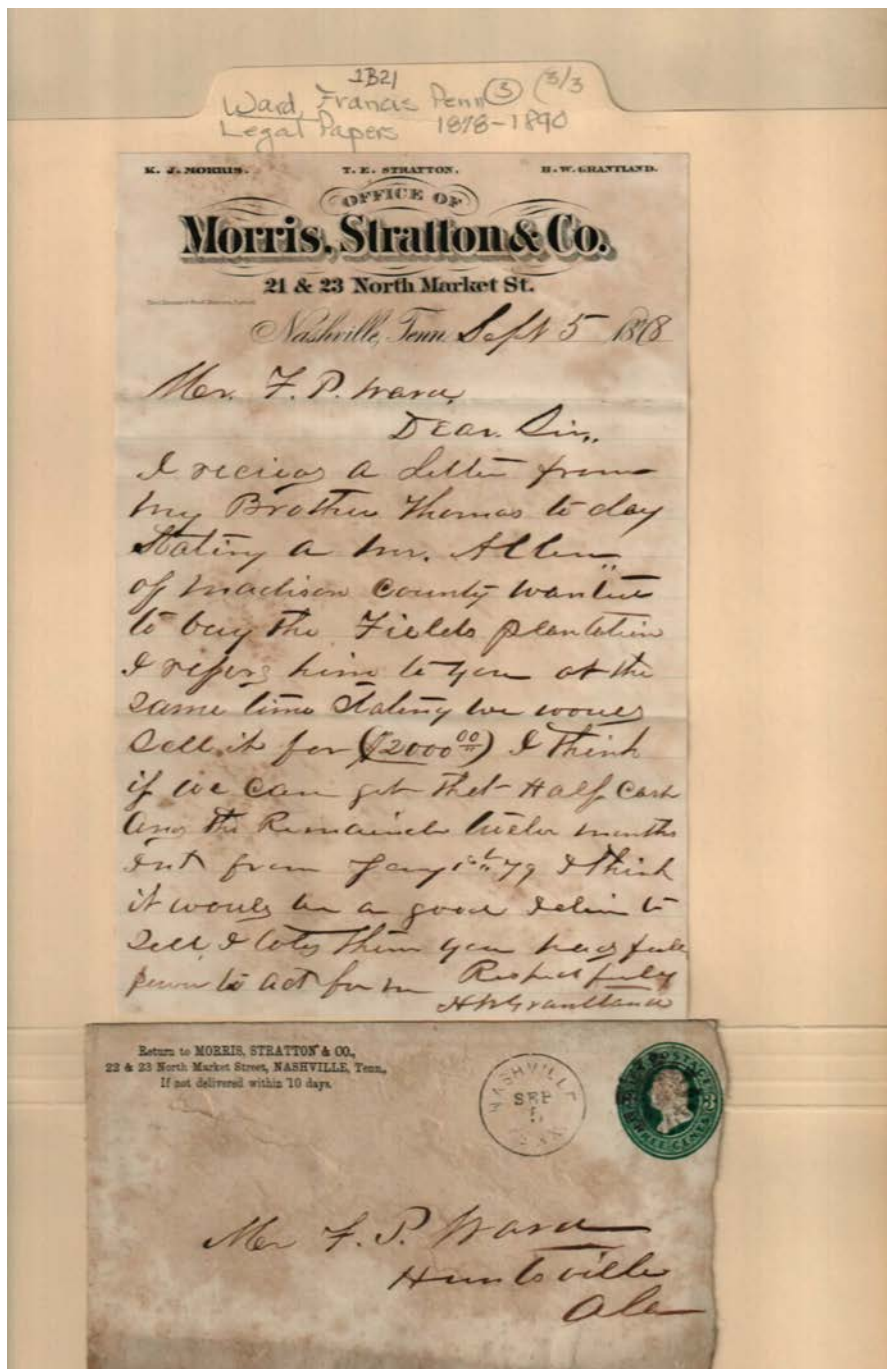 1B21
Ward, Francis Penn ③ (3/3
Legal Papers 1878-1890
K. J. MORRIS. T. E. STRATTON. H. W. GRANTLAND.
OFFICE OF
Morris, Stratton & Co.
21 & 23 North Market St.
Nashville, Tenn. Sept 5 1878
Mr. F. P. Ward,
Dear Sir,
I recieved a Letter from
my Brother Thomas to day
Stating a Mr. Allen
of Madison County wanted
to buy the Fields plantation
I refered him to you at the
same time Stating we would
Sell it for ($2000.00) I think
if we can get that Half Cash
and the Remainder twelve months
from Jany 1st 79 I think
it would be a good to
Sell. I told them you had full
power to act for me Respectfully
H W Grantland
Return to MORRIS, STRATTON & CO.,
22 & 23 North Market Street, NASHVILLE, Tenn.,
If not delivered within 10 days.
NASHVILLE
SEP
5
TENN
U.S. POSTAGE
3 3
THREE CENTS
Mr F. P. Ward
Huntsville
Ala